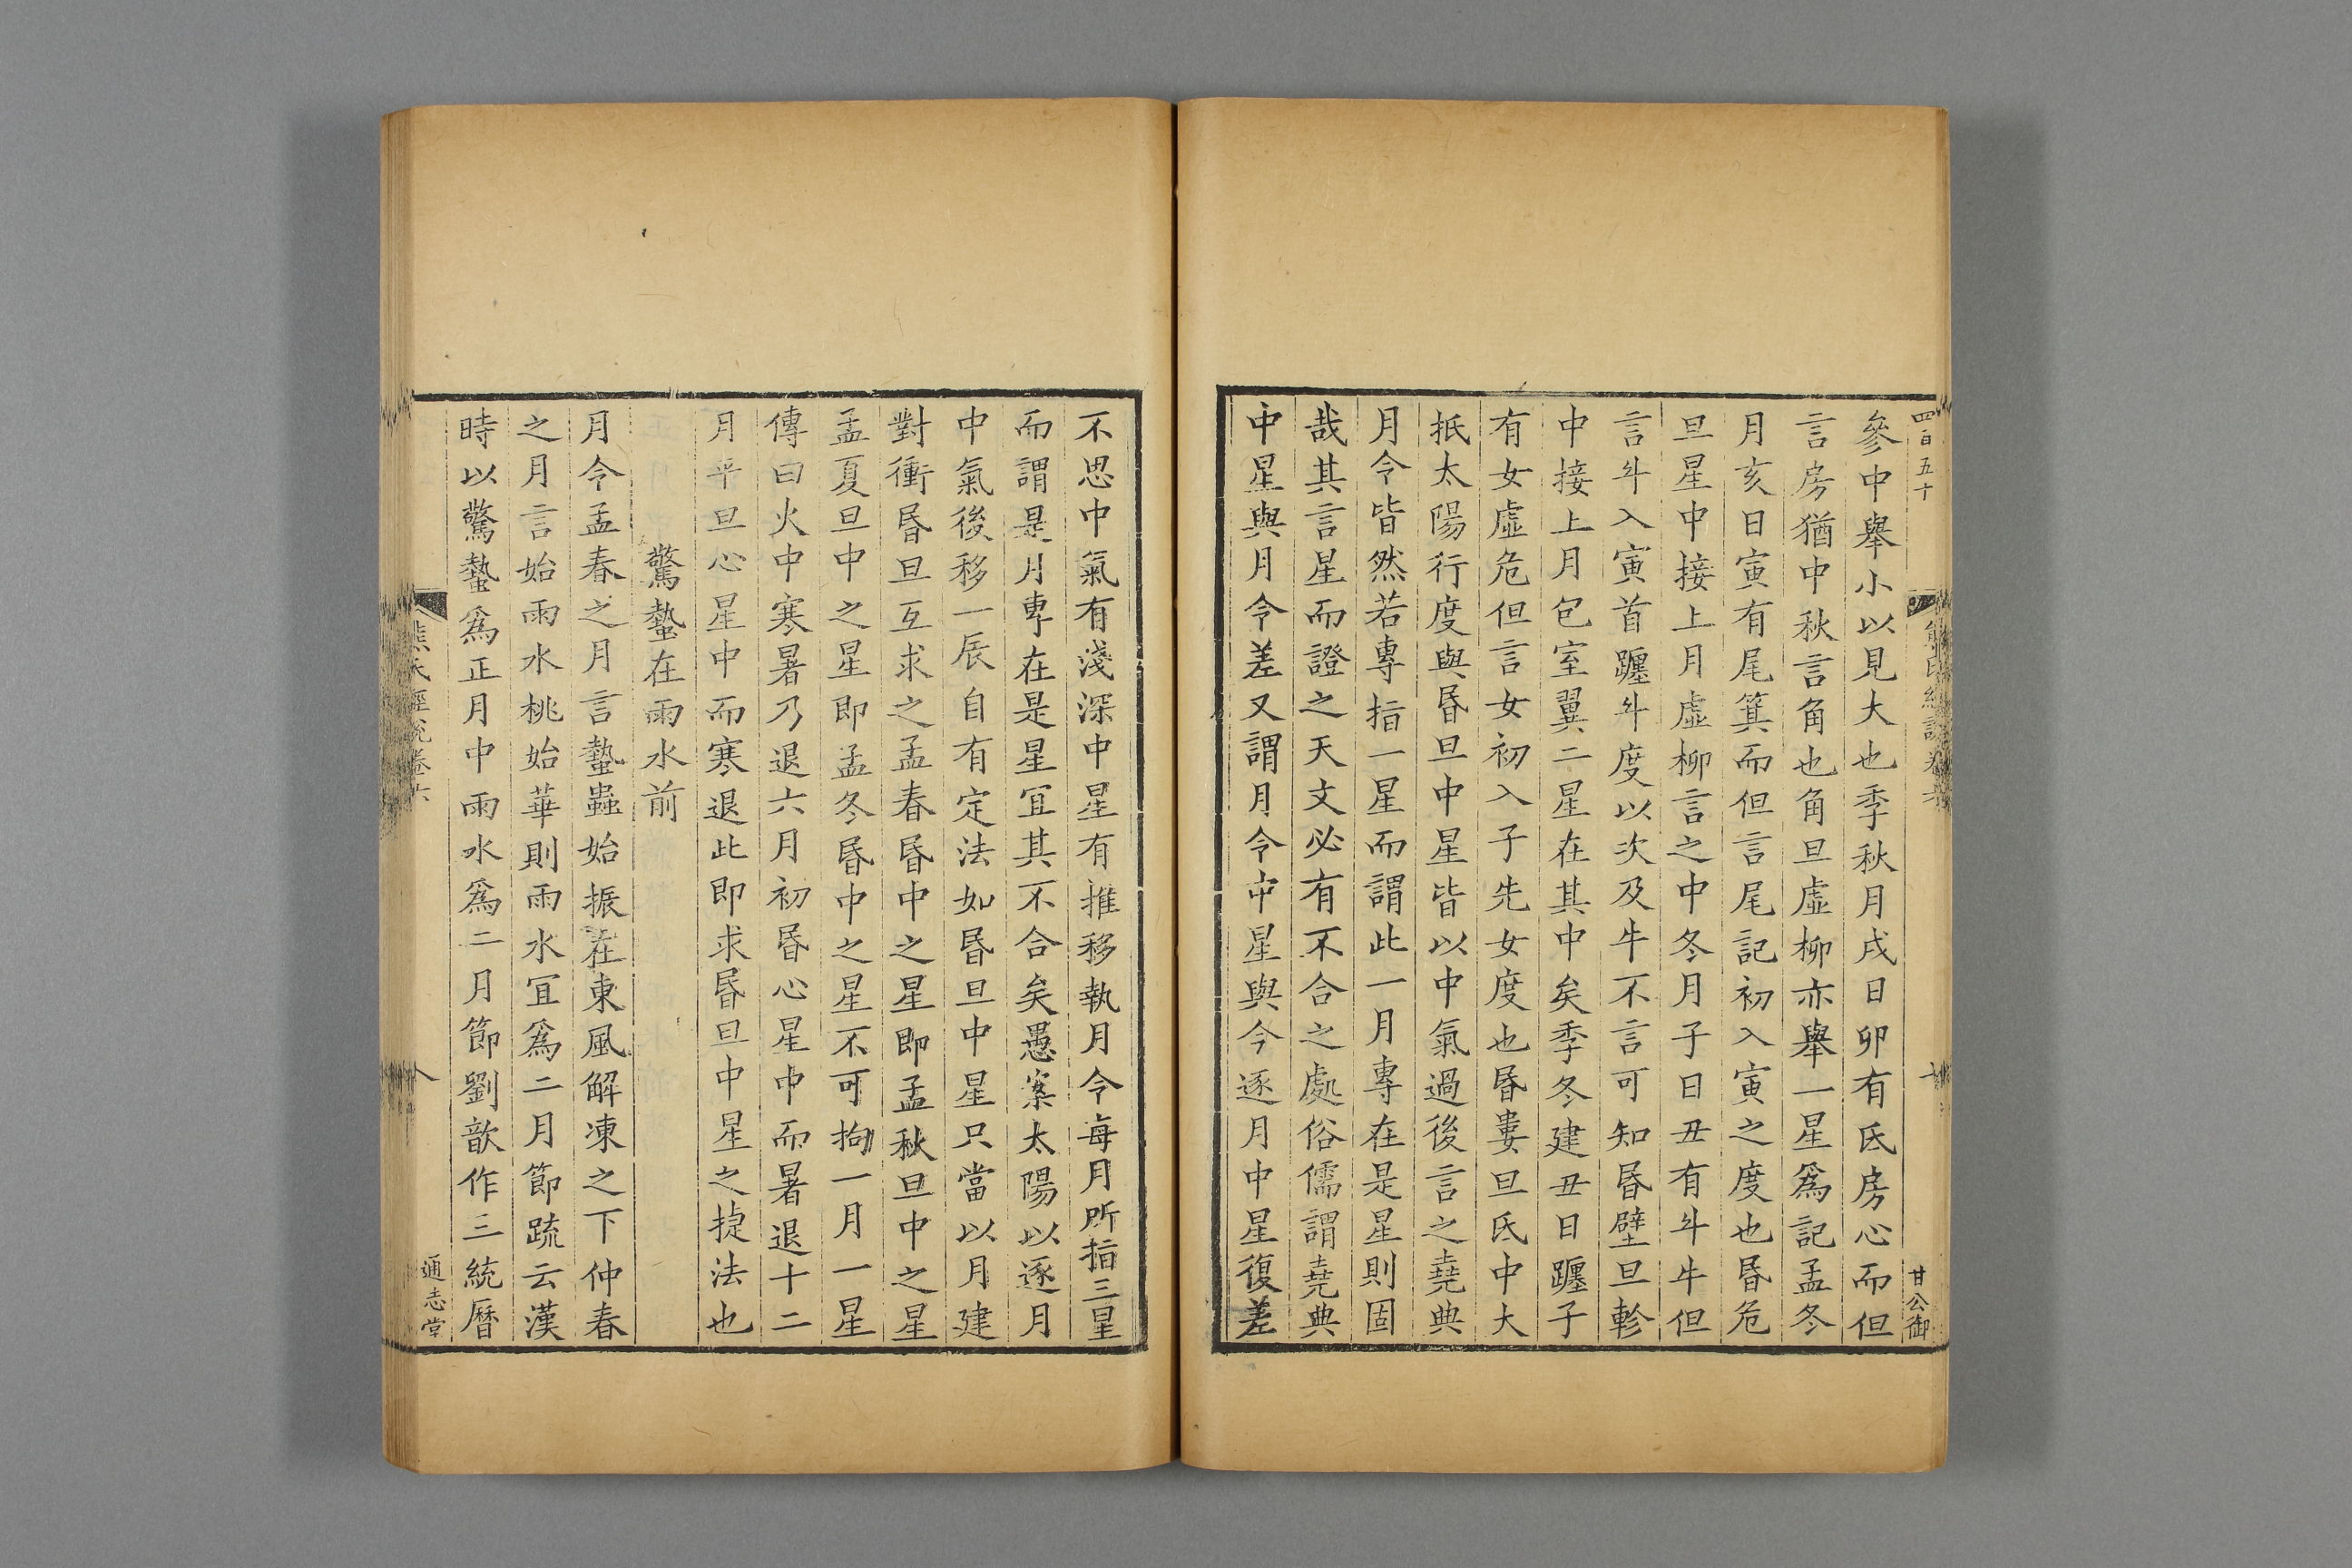 四百五十
甘公御
參中舉小以見大也季秋月戌日卯有氐房心而但
言房猶中秋言角也角旦虛柳亦舉一星爲記孟冬
月亥日寅有尾箕而但言尾記初入寅之度也昬危
旦星中接上月虛柳言之中冬月子日丑有斗牛但
言斗入寅首躔斗度以次及牛不言可知昬壁旦軫
中接上月包室翼二星在其中矣季冬建丑日躔子
有女虛危但言女初入子先女度也昬婁旦氐中大
抵太陽行度與昬旦中星皆以中氣過後言之堯典
月令皆然若專指一星而謂此一月專在是星則固
哉其言星而證之天文必有不合之處俗儒謂堯典
中星與月令差又謂月令中星與今逐月中星復差
不思中氣有淺深中星有推移執月令每月所指三星
而謂是月專在是星宜其不合矣愚案太陽以逐月
中氣後移一辰自有定法如昬旦中星只當以月建
對衝昬旦互求之孟春昬中之星即孟秋旦中之星
孟夏旦中之星即孟冬昬中之星不可拘一月一星
傳曰火中寒暑乃退六月初昬心星中而暑退十二
月平旦心星中而寒退此即求昬旦中星之捷法也
驚蟄在雨水前
月令孟春之月言蟄蟲始振在東風解凍之下仲春
之月言始雨水桃始華則雨水宜爲二月節疏云漢
時以驚蟄爲正月中雨水爲二月節劉歆作三統曆
熊氏經說卷六
八
通志堂